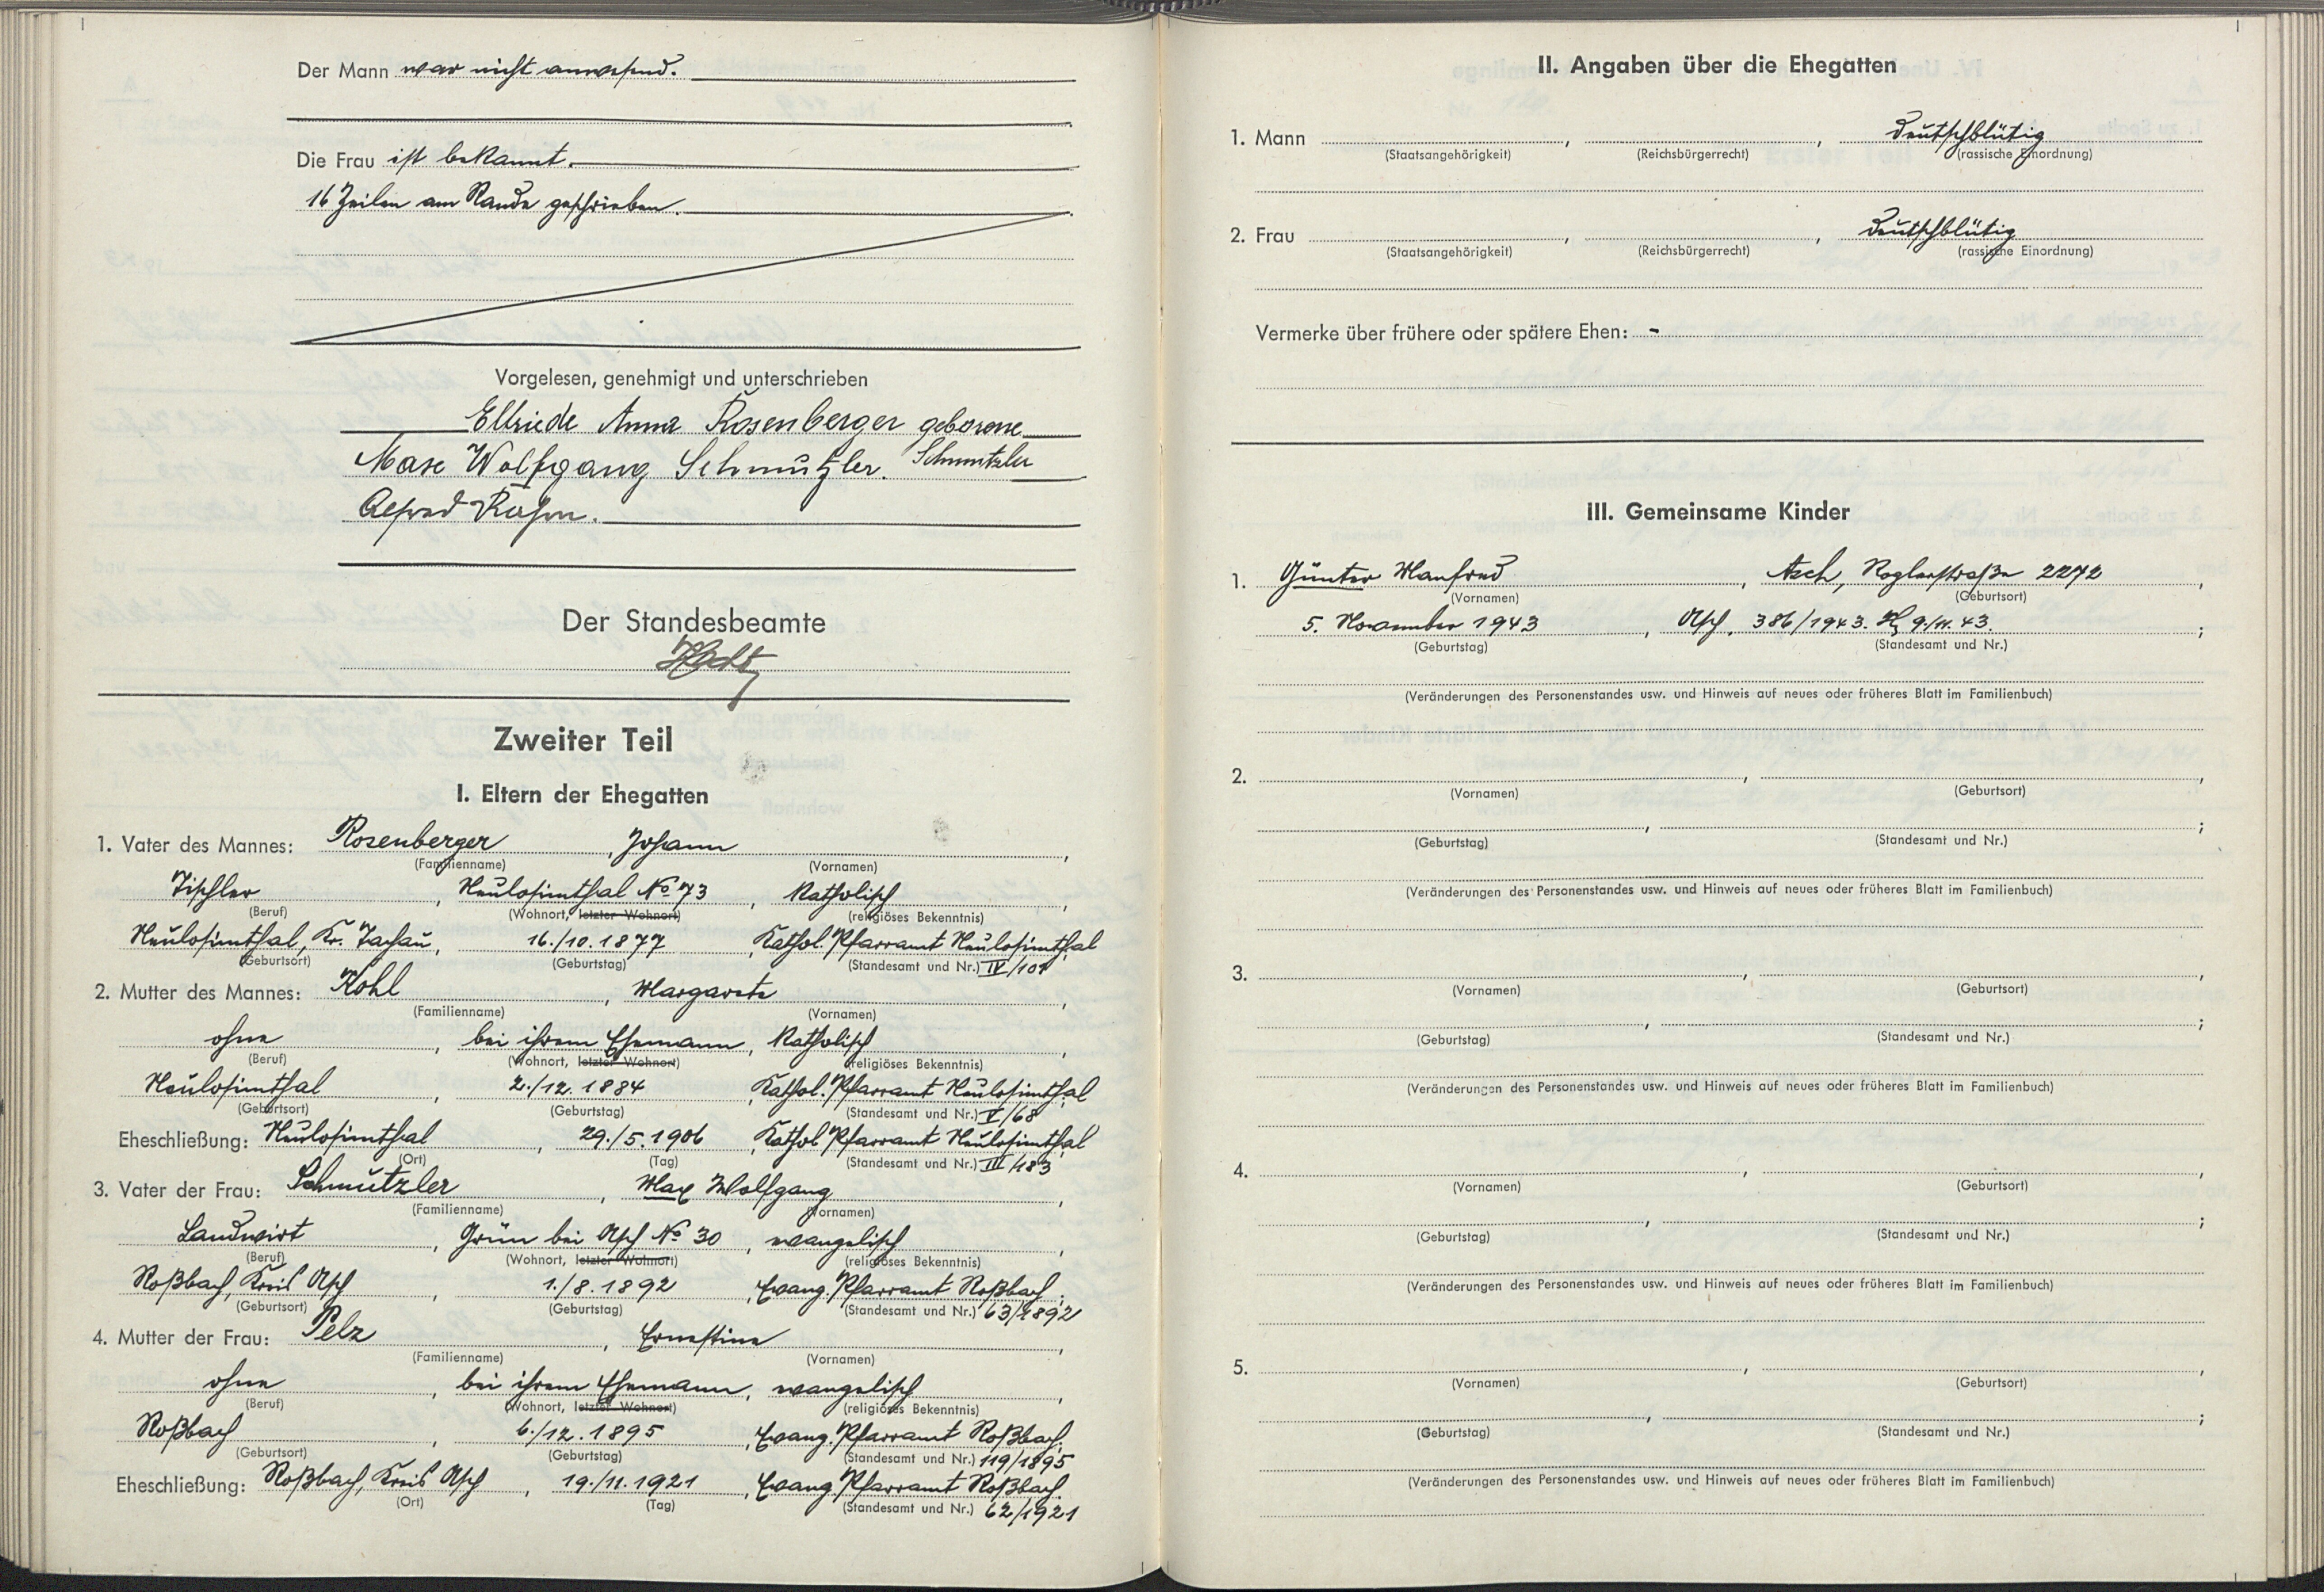 Der Mann war nicht anwesend.
Die Frau ist bekannt.
16 Zeilen am Rande geschrieben.
Vorgelesen, genehmigt und unterschrieben
Elfriede Anna Rosenberger geborene
Max Wolfgang Schmutzler. Schmutzler
Alfred
Der Standesbeamte
Zweiter Teil
I. Eltern der Ehegatten
1. Vater des Mannes: Rosenberger, Johann,
(Familienname) (Vornamen)
Tischler, Neulosimthal No 73, Katholisch,
(Beruf) (Wohnort, letzter Wohnort) (religiöses Bekenntnis)
Neulosimthal, Kr. Tachau, 16./10.1877, Kathol. Pfarramt Neulosimthal
(Geburtsort) (Geburtstag) (Standesamt und Nr.) IV/101
2. Mutter des Mannes: Kohl, Margarete,
(Familienname) (Vornamen)
ohne, bei ihrem Ehemann, Katholisch,
(Beruf) (Wohnort, letzter Wohnort) (religiöses Bekenntnis)
Neulosimthal, 2./12.1884, Kathol. Pfarramt Neulosimthal
(Geburtsort) (Geburtstag) (Standesamt und Nr.) V/68
Eheschließung: Neulosimthal, 29./5.1906, Kathol Pfarramt Neulosimthal
(Ort) (Tag) (Standesamt und Nr.) III/183
3. Vater der Frau: Schmutzler, Max Wolfgang,
(Familienname) (Vornamen)
Landwirt, Grün bei Asch No 30, evangelisch,
(Beruf) (Wohnort, letzter Wohnort) (religiöses Bekenntnis)
Roßbach, Kreis Asch, 1./8.1892, Evang. Pfarramt Roßbach;
(Geburtsort) (Geburtstag) (Standesamt und Nr.) 63/1892
4. Mutter der Frau: Pelz, Ernestine,
(Familienname) (Vornamen)
ohne, bei ihrem Ehemann, evangelisch,
(Beruf) (Wohnort, letzter Wohnort) (religiöses Bekenntnis)
Roßbach, 6./12.1895, Evang. Pfarramt Roßbach;
(Geburtsort) (Geburtstag) (Standesamt und Nr.) 119/1895
Eheschließung: Roßbach, Kreis Asch, 19./11.1921, Evang. Pfarramt Roßbach.
(Ort) (Tag) (Standesamt und Nr.) 62/1921
II. Angaben über die Ehegatten
1. Mann , , deutschblütig
(Staatsangehörigkeit) (Reichsbürgerrecht) (rassische Einordnung)
2. Frau , , deutschblütig
(Staatsangehörigkeit) (Reichsbürgerrecht) (rassische Einordnung)
Vermerke über frühere oder spätere Ehen: -
III. Gemeinsame Kinder
1. Günter Manfred, Asch, Roglerstraße 2272,
(Vornamen) (Geburtsort)
5. November 1943, Asch, 386/1943. 9./11.43.;
(Geburtstag) (Standesamt und Nr.)
(Veränderungen des Personenstandes usw. und Hinweis auf neues oder früheres Blatt im Familienbuch)
2. , ,
(Vornamen) (Geburtsort)
, ;
(Geburtstag) (Standesamt und Nr.)
(Veränderungen des Personenstandes usw. und Hinweis auf neues oder früheres Blatt im Familienbuch)
3. , ,
(Vornamen) (Geburtsort)
, ;
(Geburtstag) (Standesamt und Nr.)
(Veränderungen des Personenstandes usw. und Hinweis auf neues oder früheres Blatt im Familienbuch)
4. , ,
(Vornamen) (Geburtsort)
, ;
(Geburtstag) (Standesamt und Nr.)
(Veränderungen des Personenstandes usw. und Hinweis auf neues oder früheres Blatt im Familienbuch)
5. , ,
(Vornamen) (Geburtsort)
, ;
(Geburtstag) (Standesamt und Nr.)
(Veränderungen des Personenstandes usw. und Hinweis auf neues oder früheres Blatt im Familienbuch)